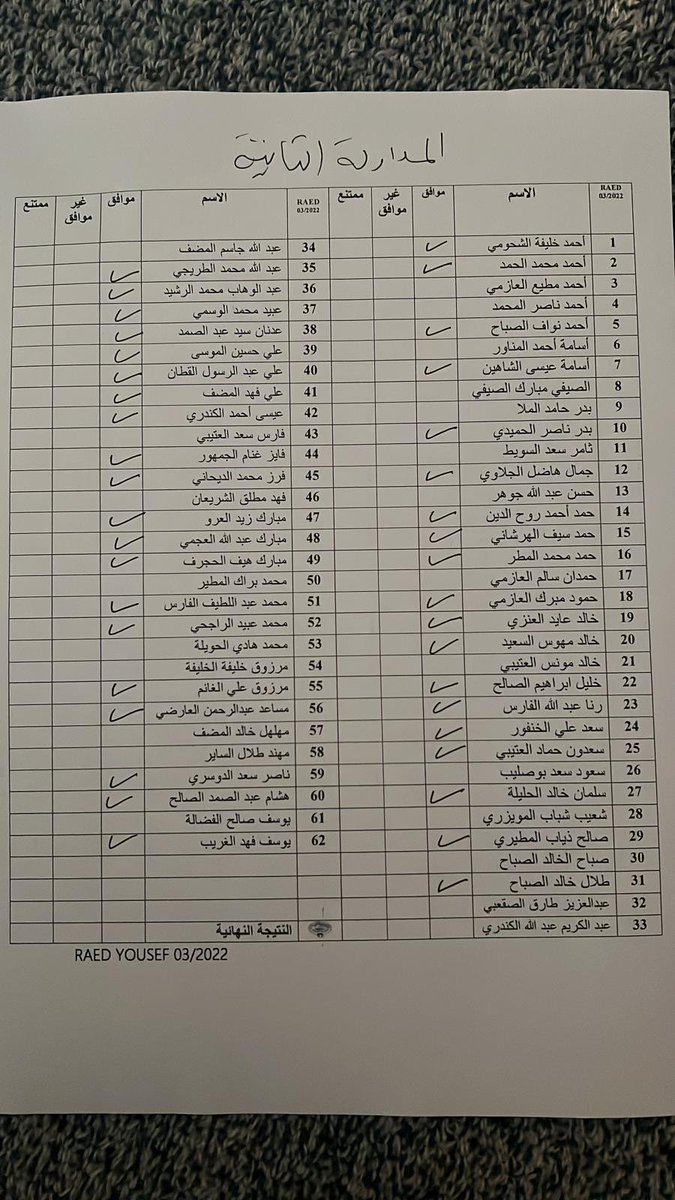 المداولة الثانية
RAED 03/2022 الاسم موافق غير موافق ممتنع
1 أحمد خليفة الشحومي ✓
2 أحمد محمد الحمد ✓
3 أحمد مطيع العازمي
4 أحمد ناصر المحمد
5 أحمد نواف الصباح ✓
6 أسامة أحمد المناور
7 أسامة عيسى الشاهين ✓
8 الصيفي مبارك الصيفي
9 بدر حامد الملا
10 بدر ناصر الحميدي ✓
11 ثامر سعد السويط
12 جمال هاضل الجلاوي ✓
13 حسن عبد الله جوهر
14 حمد أحمد روح الدين ✓
15 حمد سيف الهرشاني ✓
16 حمد محمد المطر ✓
17 حمدان سالم العازمي
18 حمود مبرك العازمي ✓
19 خالد عايد العنزي ✓
20 خالد مهوس السعيد ✓
21 خالد مونس العتيبي
22 خليل ابراهيم الصالح ✓
23 رنا عبد الله الفارس ✓
24 سعد علي الخنفور ✓
25 سعدون حماد العتيبي ✓
26 سعود سعد بوصليب
27 سلمان خالد الحليلة ✓
28 شعيب شباب المويزري
29 صالح ذياب المطيري ✓
30 صباح الخالد الصباح
31 طلال خالد الصباح ✓
32 عبدالعزيز طارق الصقعبي
33 عبد الكريم عبد الله الكندري
RAED 03/2022 الاسم موافق غير موافق ممتنع
34 عبد الله جاسم المضف
35 عبد الله محمد الطريجي ✓
36 عبد الوهاب محمد الرشيد ✓
37 عبيد محمد الوسمي ✓
38 عدنان سيد عبد الصمد ✓
39 علي حسين الموسى ✓
40 علي عبد الرسول القطان ✓
41 علي فهد المضف ✓
42 عيسى أحمد الكندري ✓
43 فارس سعد العتيبي
44 فايز غنام الجمهور ✓
45 فرز محمد الديحاني ✓
46 فهد مطلق الشريعان
47 مبارك زيد العرو ✓
48 مبارك عبد الله العجمي ✓
49 مبارك هيف الحجرف ✓
50 محمد براك المطير
51 محمد عبد اللطيف الفارس ✓
52 محمد عبيد الراجحي ✓
53 محمد هادي الحويلة
54 مرزوق خليفة الخليفة
55 مرزوق علي الغانم ✓
56 مساعد عبدالرحمن العارضي ✓
57 مهلهل خالد المضف
58 مهند طلال الساير
59 ناصر سعد الدوسري ✓
60 هشام عبد الصمد الصالح ✓
61 يوسف صالح الفضالة
62 يوسف فهد الغريب ✓
النتيجة النهائية
RAED YOUSEF 03/2022